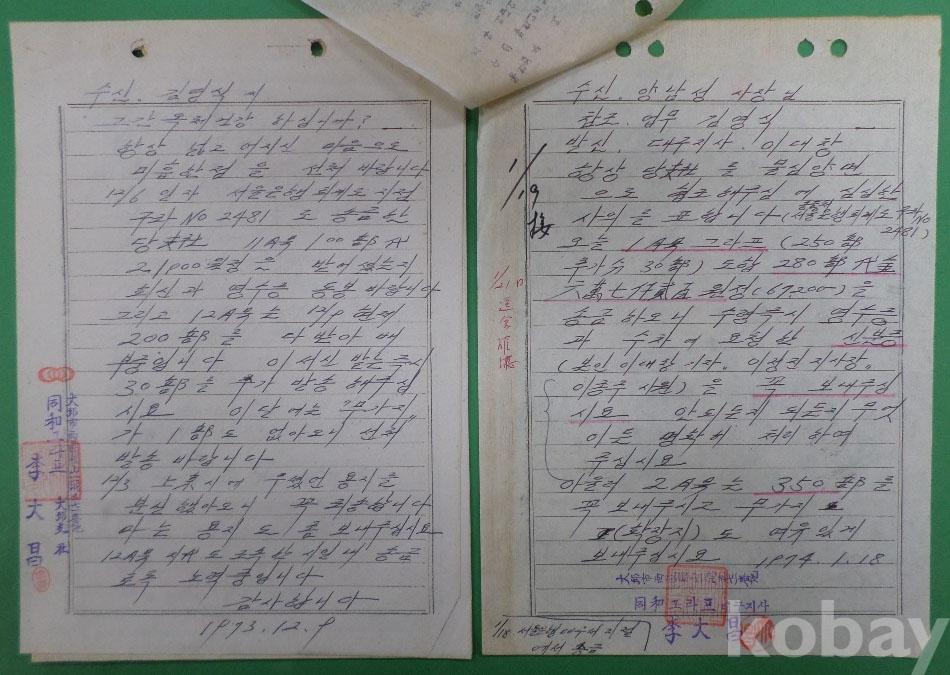 수신. 김영식 씨
그간 옥체건강 하십니까?
항상 넓고 어지신 마음으로
바랍니다
12/6 일자 서울은행 퇴계로 지점
구좌 No 2481 로 송금한
당支社 11月号 100部代
21,000원정을 받으셨는지
회신과 영수증 동봉 바랍니다
그리고 12月号는 12/9 현재
200部를 다 받아 배
부중입니다 이 서신 받는 즉시
30部를 추가 발송 해주십
시요 이달에는 "무가지"
가 1部도 없아오니 선처
발송 바랍니다
12/3
꼭 희송합니다
용지도 좀 보내주십시요
12月号 시일내 송금
토록 노력중입니다
감사합니다
1973. 12. 9
同和그라프 大邱支社
李大昌
수신. 양남성 사장님
참조. 업무 김영식
발신. 대구지사. 이대창
항상 당支社를 물심양면
으로 협조해주심에 심심한
사의를 표합니다 (서울은행 퇴계로 구좌 No 2481)
오늘 1月号 그라프 (250部
추가分 30部) 도합 280部 代金
六萬七仟貳百원정 (67,200)을
송금하오니 수령즉시 영수증
과 수차에 요청한 신분증
(본인 이대창 지사장,
이종수 사원)을 꼭 보내주십
시요 안되든지 되든지 무엇
이든 명확히 처리하여
주십시요
아울러 2月号는 350部를
꼭 보내주시고 무가지
(확장지)도 여유있게
보내주십시요 1974. 1. 18
同和그라프 대구지사
李大昌
1/19
接
1/21日
1/18 서울은행 대구서지점
에서 송금
kobay